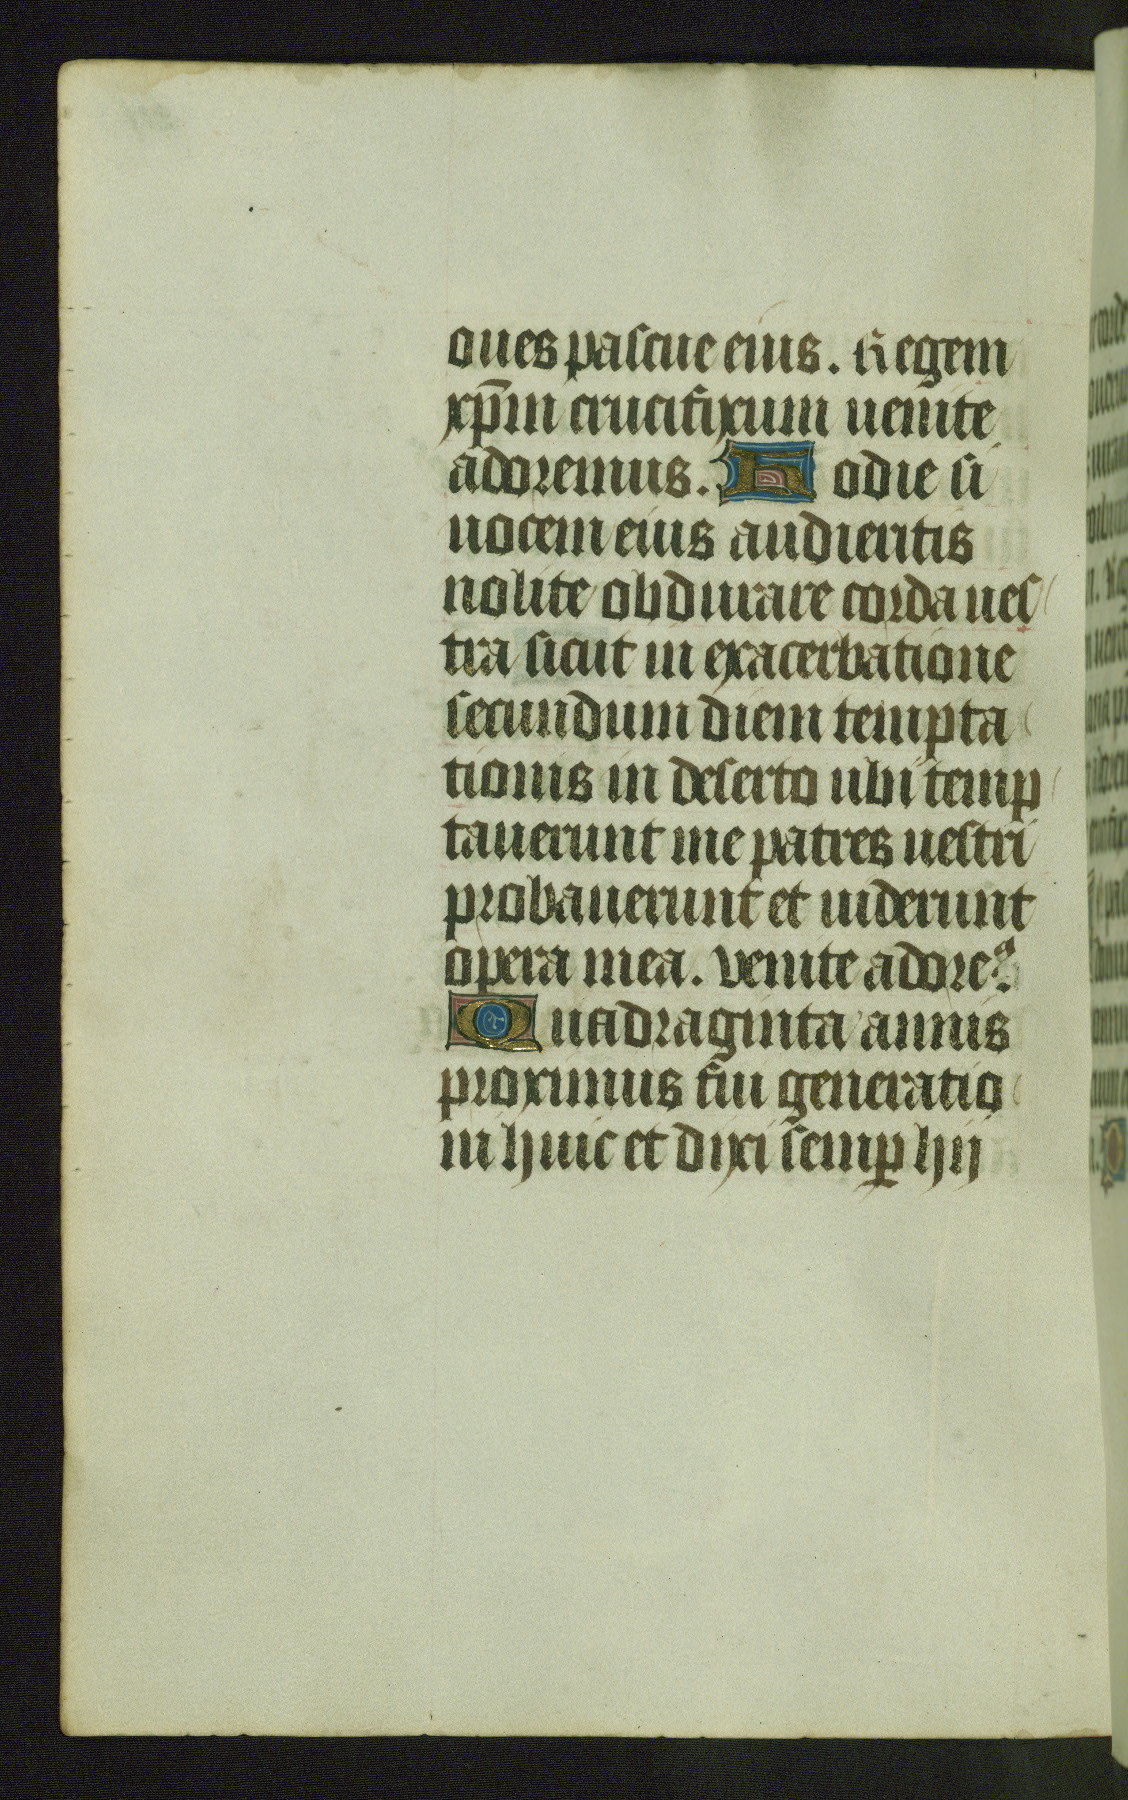 oues pascue eius. Regem
xp̄m crucifixum uenite
adoremus. Hodie si
uocem eius audieritis
nolite obdurare corda ues
tra sicut in exacerbatione
secundum diem tempta
tionis in deserto ubi temp
tauerunt me patres uestri
probauerunt et uiderunt
opera mea. venite adoreꝰ.
Quadraginta annis
proximus fui generatio
ni huic et dixi semꝑ hij